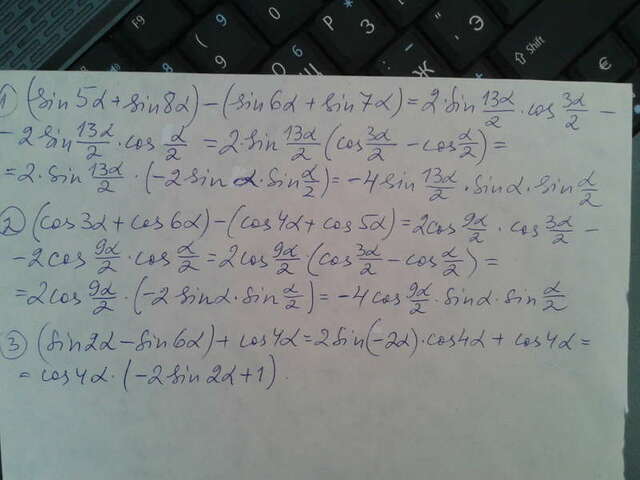 F9 9 ( 0 P * З / Є € Shift
9 О 6 Щ Ж : ; " ~
1) (sin5α+sin8α)-(sin6α+sin7α)=2·sin 13α/2 · cos 3α/2 -
- 2sin 13α/2 · cos α/2 = 2·sin 13α/2 (cos 3α/2 - cos α/2) =
= 2·sin 13α/2 · (-2sin α·sin α/2) = -4sin 13α/2 · sinα·sin α/2
2) (cos3α+cos6α)-(cos4α+cos5α)=2cos 9α/2 · cos 3α/2 -
- 2cos 9α/2 · cos α/2 = 2cos 9α/2 (cos 3α/2 - cos α/2) =
= 2cos 9α/2 · (-2sinα·sin α/2) = -4cos 9α/2 · sinα·sin α/2
3) (sin2α-sin6α)+cos4α=2sin(-2α)·cos4α+cos4α=
= cos4α·(-2sin2α+1).